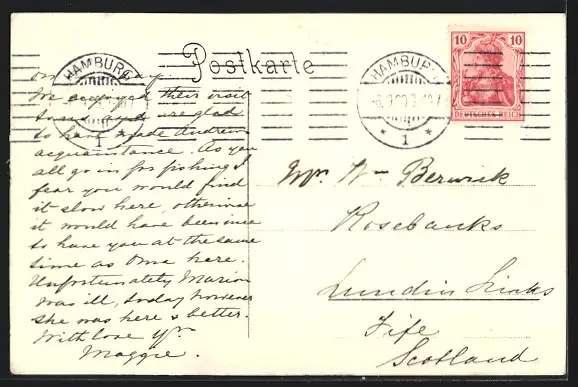 Postkarte
HAMBURG
1
HAMBURG
* 1 *
10 10
DEUTSCHES REICH
We enjoyed their visit
so are glad
to have made Andrew
acquaintance. As you
all go in for fishing I
fear you would find
it slow here, otherwise
it would have been nice
to have you at the same
time as Oma here.
Unfortunately Marion
was ill, today however
she was here & better.
With love yr.
Maggie.
Mr. Wm Berwick
Rosebanks
Lundin Links
Fife
Scotland